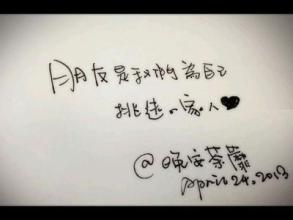 朋友是我們為自己
挑選の家人♥
@晚安荼蘼
April 24.2013